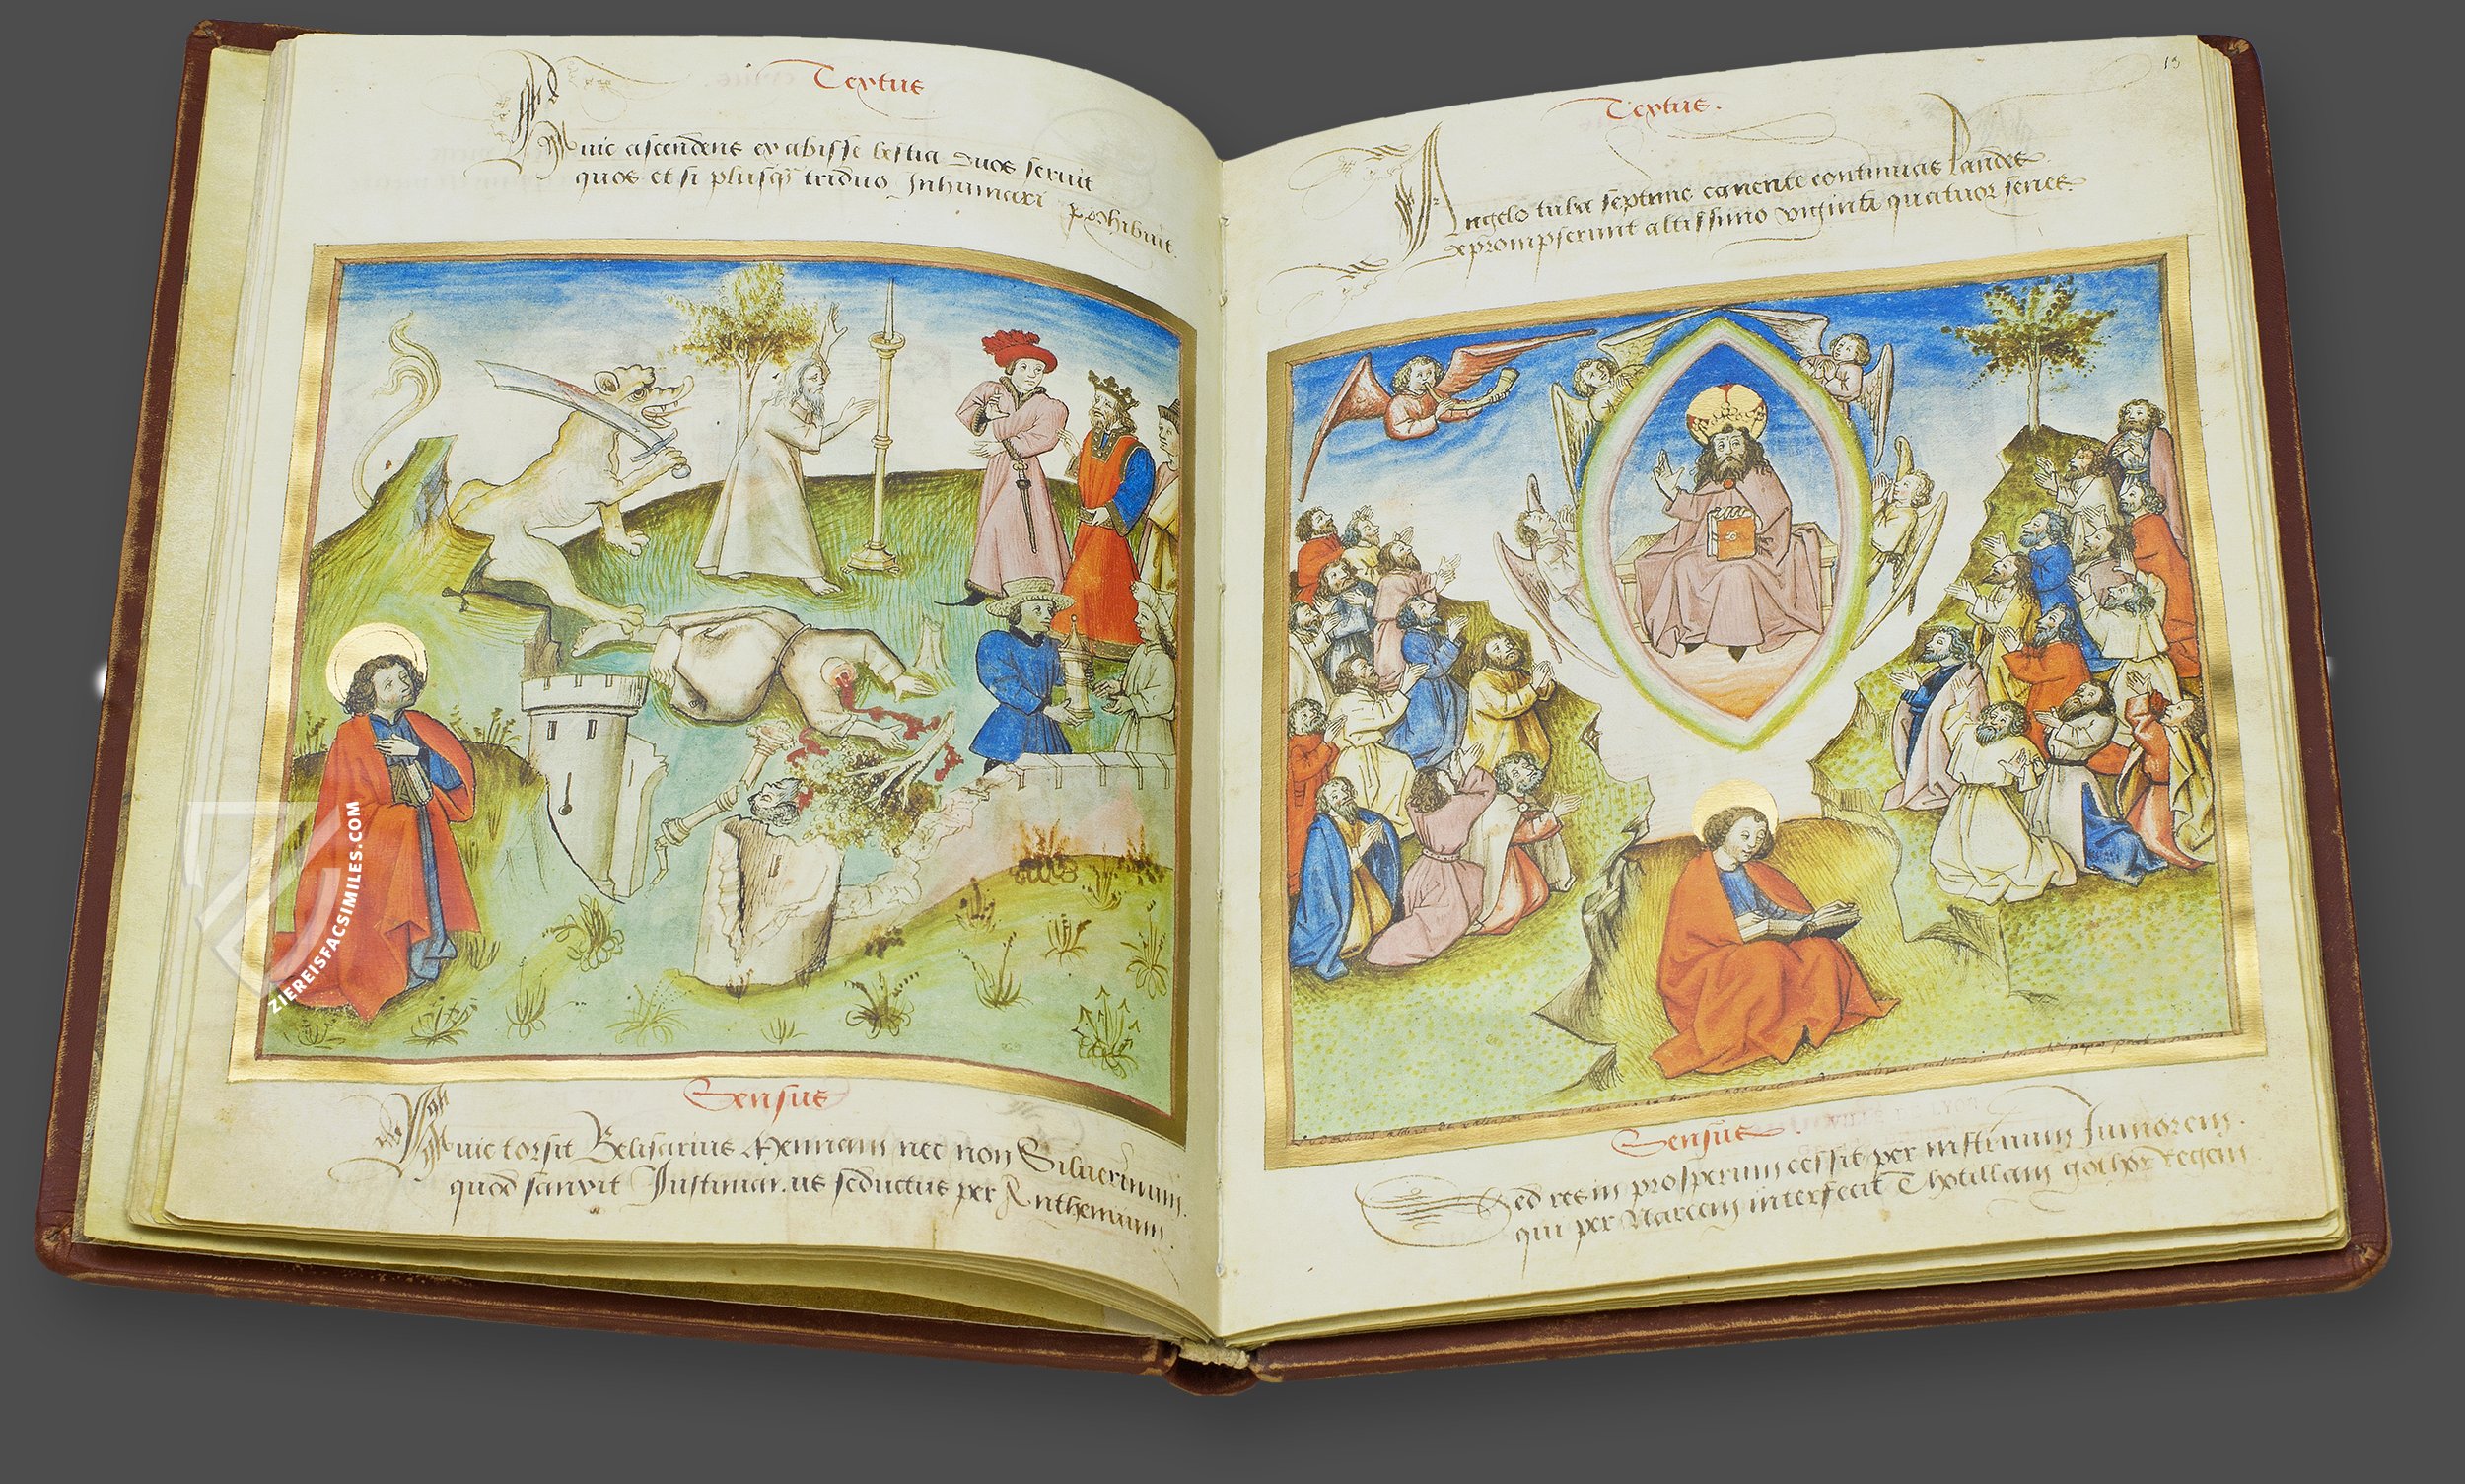 Textus
Huic ascendens ex abisse bestia duos seruit
quos et si plusq̃ triduo Inhumari prohibuit.
ZIEREISFACSIMILES.COM
Sensus
Huic torsit Belisarius Mennam nec non Siluerinum.
quod sanxit Justinianus seductus per Anthemium.
13
Textus.
Angelo tuba septimo canente continuas laudes
exprompserunt altissimo viginti quatuor senes.
Sensus.
Sed res in prosperum cessit per Justinum Juniorem.
qui per Narcem interfecit Thotillam gothorum regem